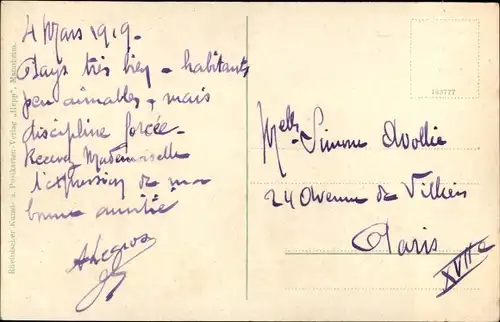 4 Mars 1919-
Pays très bien - habitants
peu aimables - mais
discipline forcée -
Recevez Mademoiselle
l'expression de ma
bonne amitié
ALegros
Rheinischer Kunst- u. Postkarten-Verlag "Hepp", Mannheim.
183777
Melle Simone Avollie
24 Avenue de Villiers
Paris
XVIIe